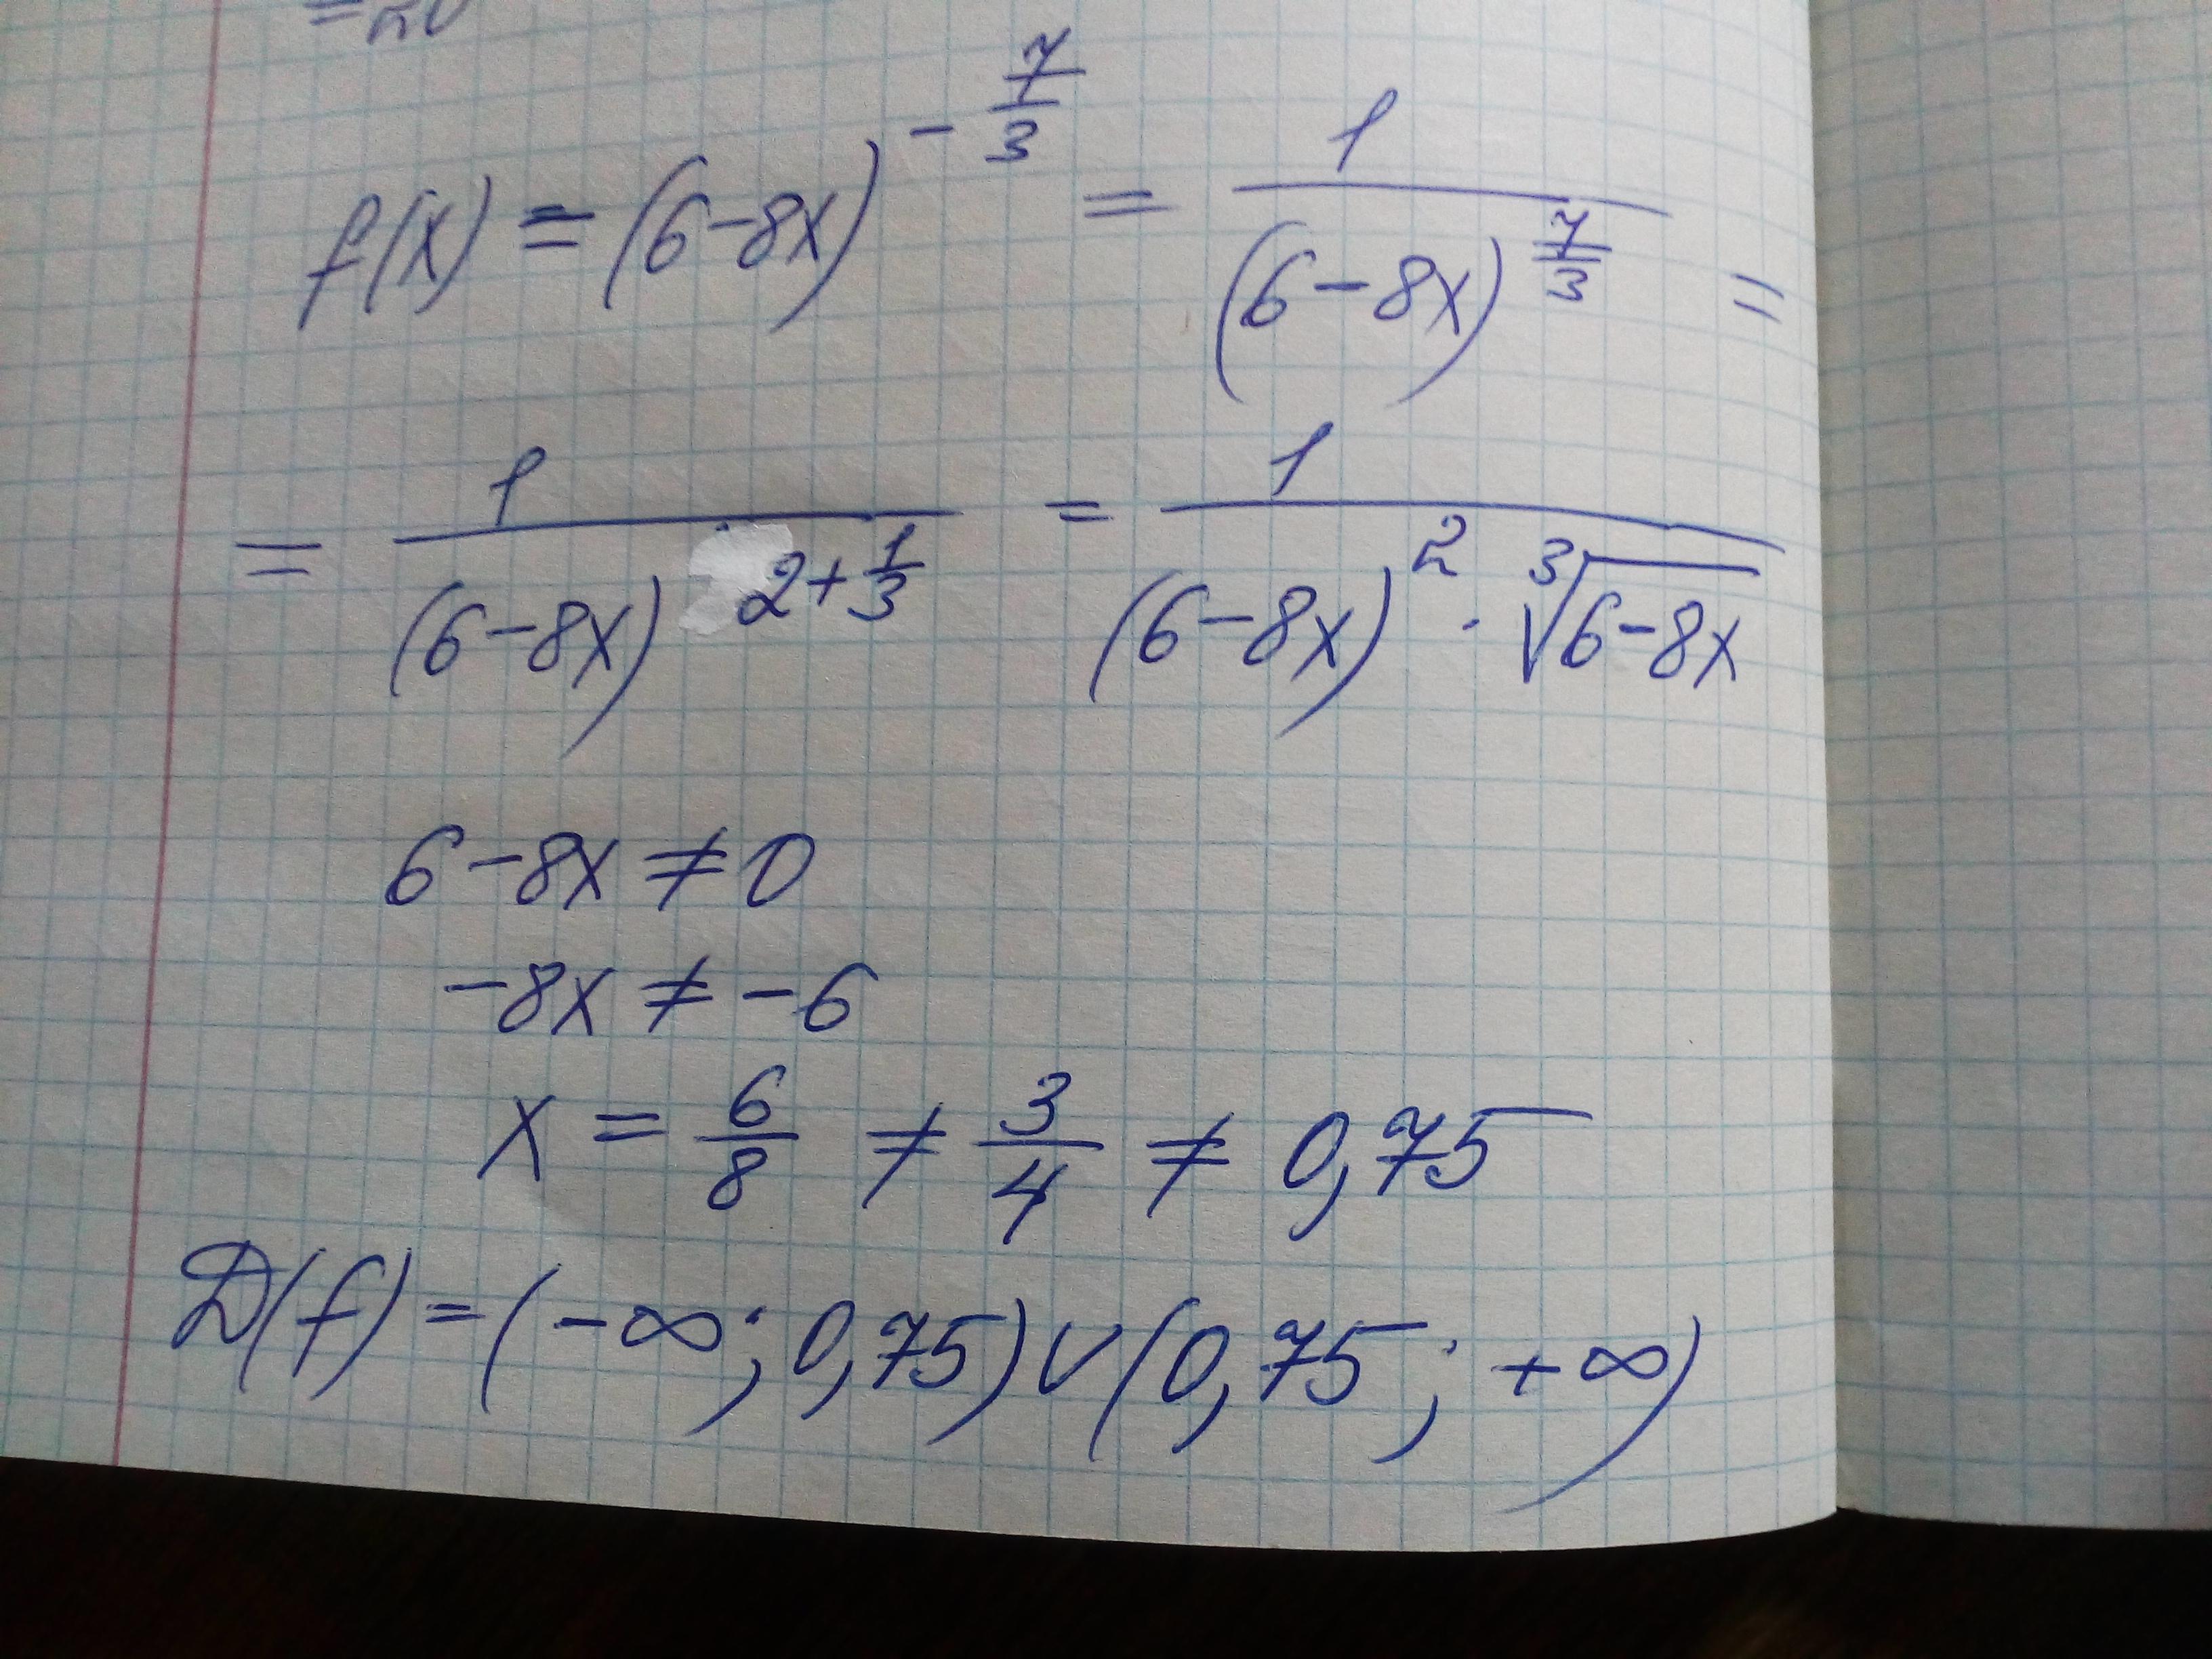 f(x) = (6-8x)^{-\frac{7}{3}} = \frac{1}{(6-8x)^{\frac{7}{3}}} =
= \frac{1}{(6-8x)^{2+\frac{1}{3}}} = \frac{1}{(6-8x)^2 \cdot \sqrt[3]{6-8x}}
6-8x ≠ 0
-8x ≠ -6
x = \frac{6}{8} ≠ \frac{3}{4} ≠ 0,75
D(f) = (-∞; 0,75) ∪ (0,75; +∞)